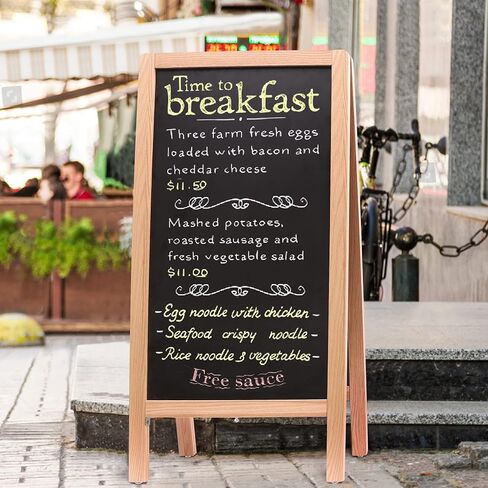 Time to
breakfast
Three farm fresh eggs
loaded with bacon and
cheddar cheese
$11.50
Mashed potatoes,
roasted sausage and
fresh vegetable salad
$11.00
- Egg noodle with chicken -
- Seafood crispy noodle -
- Rice noodle & vegetables -
Free sauce